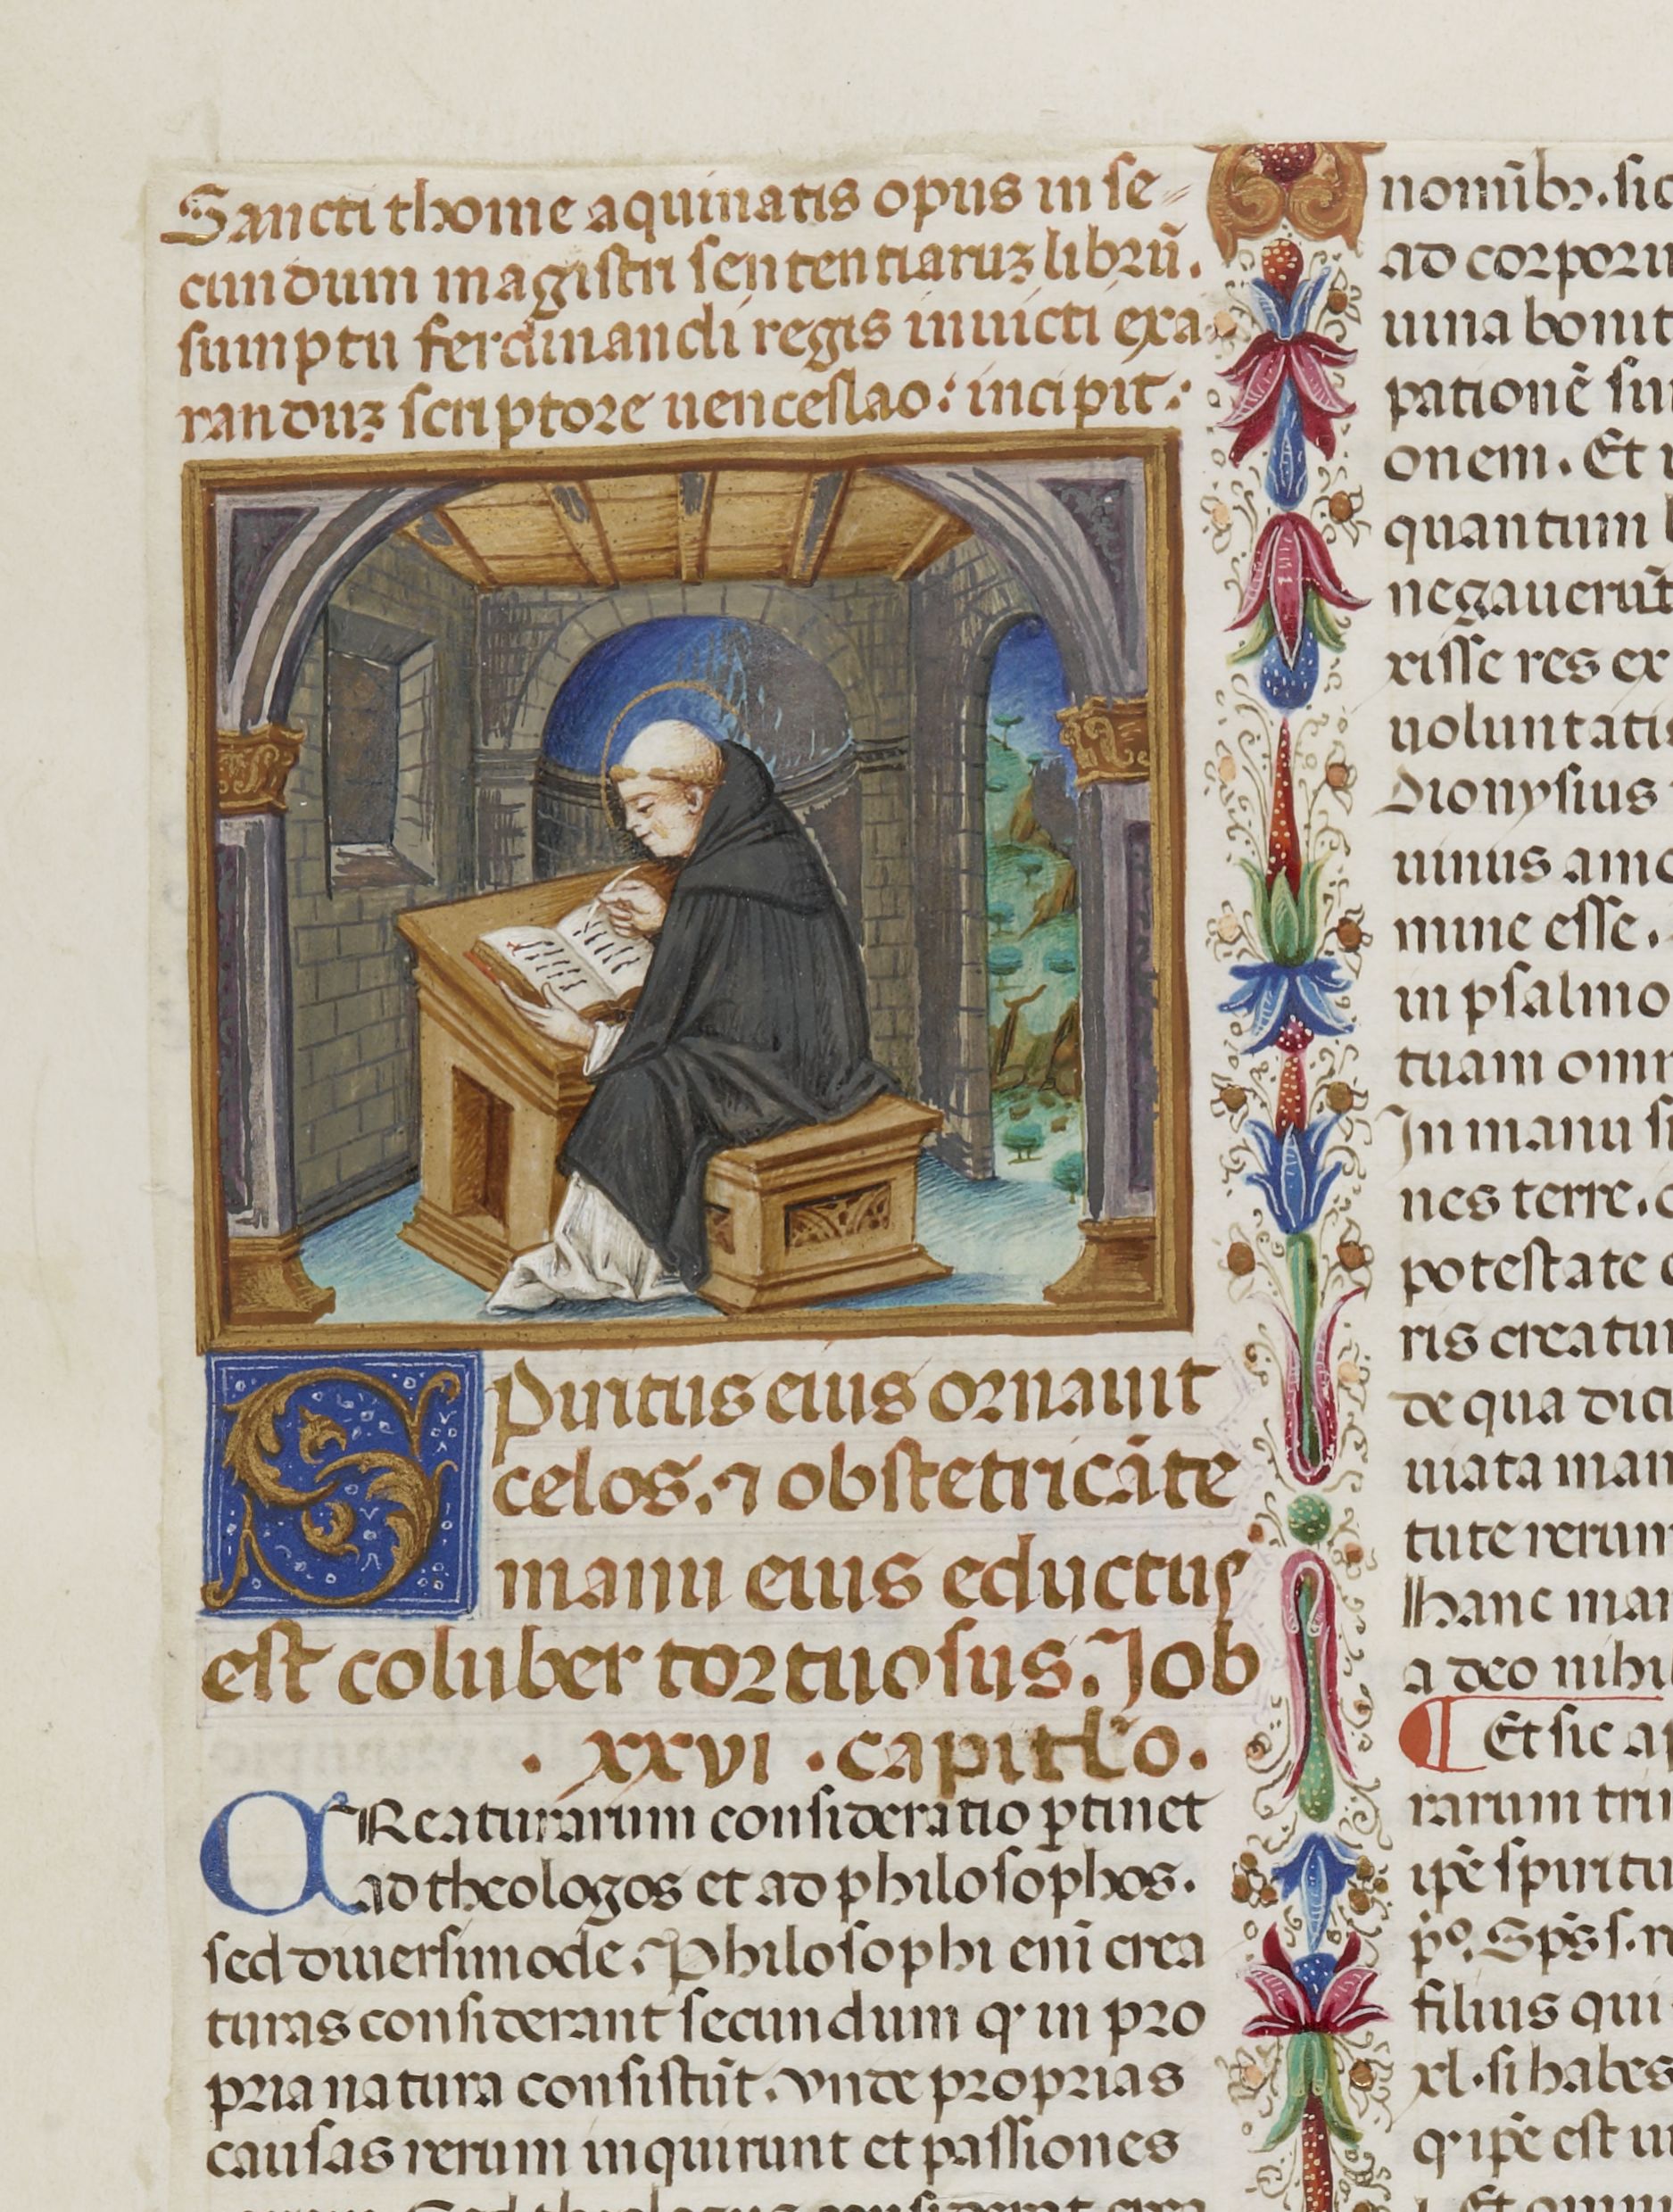 Sancti thome aquinatis opus in se-
cundum magistri sententiaruz librũ.
sumptu ferdinandi regis inuicti exa
randuz scriptore uenceslao: incipit:
Spiritus eius ornauit
celos. ⁊ obstetricãte
manu eius eductus
est coluber tortuosus. Job
. xxvi . capitło.
CReaturarum consideratio ꝑtinet
ad theologos et ad philosophos.
sed diuersimode. Philosophi eni crea
turas considerant secundum ꝙ in pro
pria natura consistũt. vnde proprias
causas rerum inquirunt et passiones
nomĩbꝫ. sic
ad corporu
uina bonit
pationẽ sun
onem. Et
quantum
negauerũt
risse res ex
uoluntati
Dionysius
uinus amo
mine esse.
in psalmo
tuam omn
In manu
nes terre.
potestate
ris creatur
de qua dici
mata man
tute rerum
hanc man
a deo nihil
¶ Et sic a
rarum trin
ip̃e spiritu
p̊. Sp̃s s.
filius qui
xl. si habes
ꝙ ip̃e est